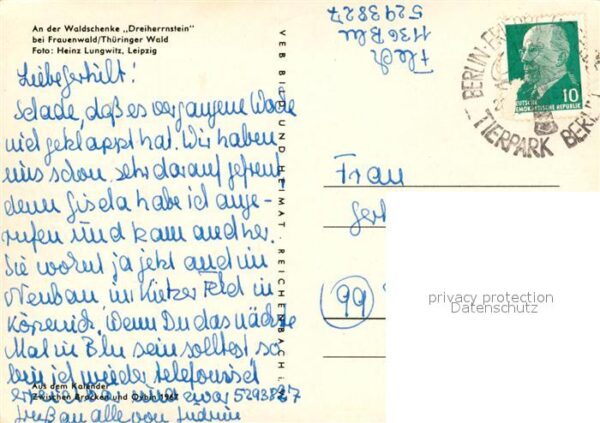 An der Waldschenke „Dreiherrnstein"
bei Frauenwald/Thüringer Wald
Foto: Heinz Lungwitz, Leipzig
Liebe
Schade, daß es vergangene Woche
nicht geklappt hat. Wir haben
uns schon sehr darauf gefreut
denn Gisela habe ich ange-
rufen und kam auch her.
Sie wohnt ja jetzt auch im
Neubau im Kietzer Feld in
Köpenick. Wenn Du das nächste
Mal in Bln sein solltest so
bin ich wieder telefonisch
zwar 5293827
alle von
Aus dem Kalender
Zwischen Brocken und Oybin 1967
VEB BILD UND HEIMAT · REICHENBACH i.
5293827
1136 Bln
BERLIN-
TIERPARK BERLIN
10
DEUTSCHE
DEMOKRATISCHE REPUBLIK
Frau
Gert
(99)
privacy protection
Datenschutz